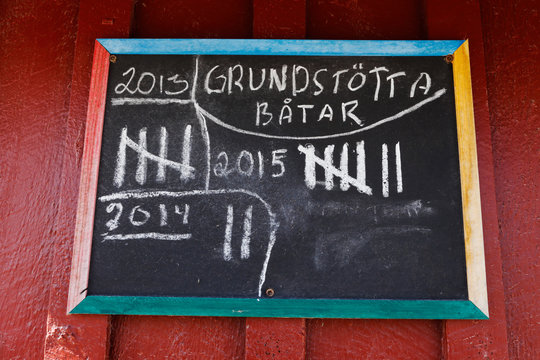 2013
GRUNDSTÖTTA
BÅTAR
2015
2014